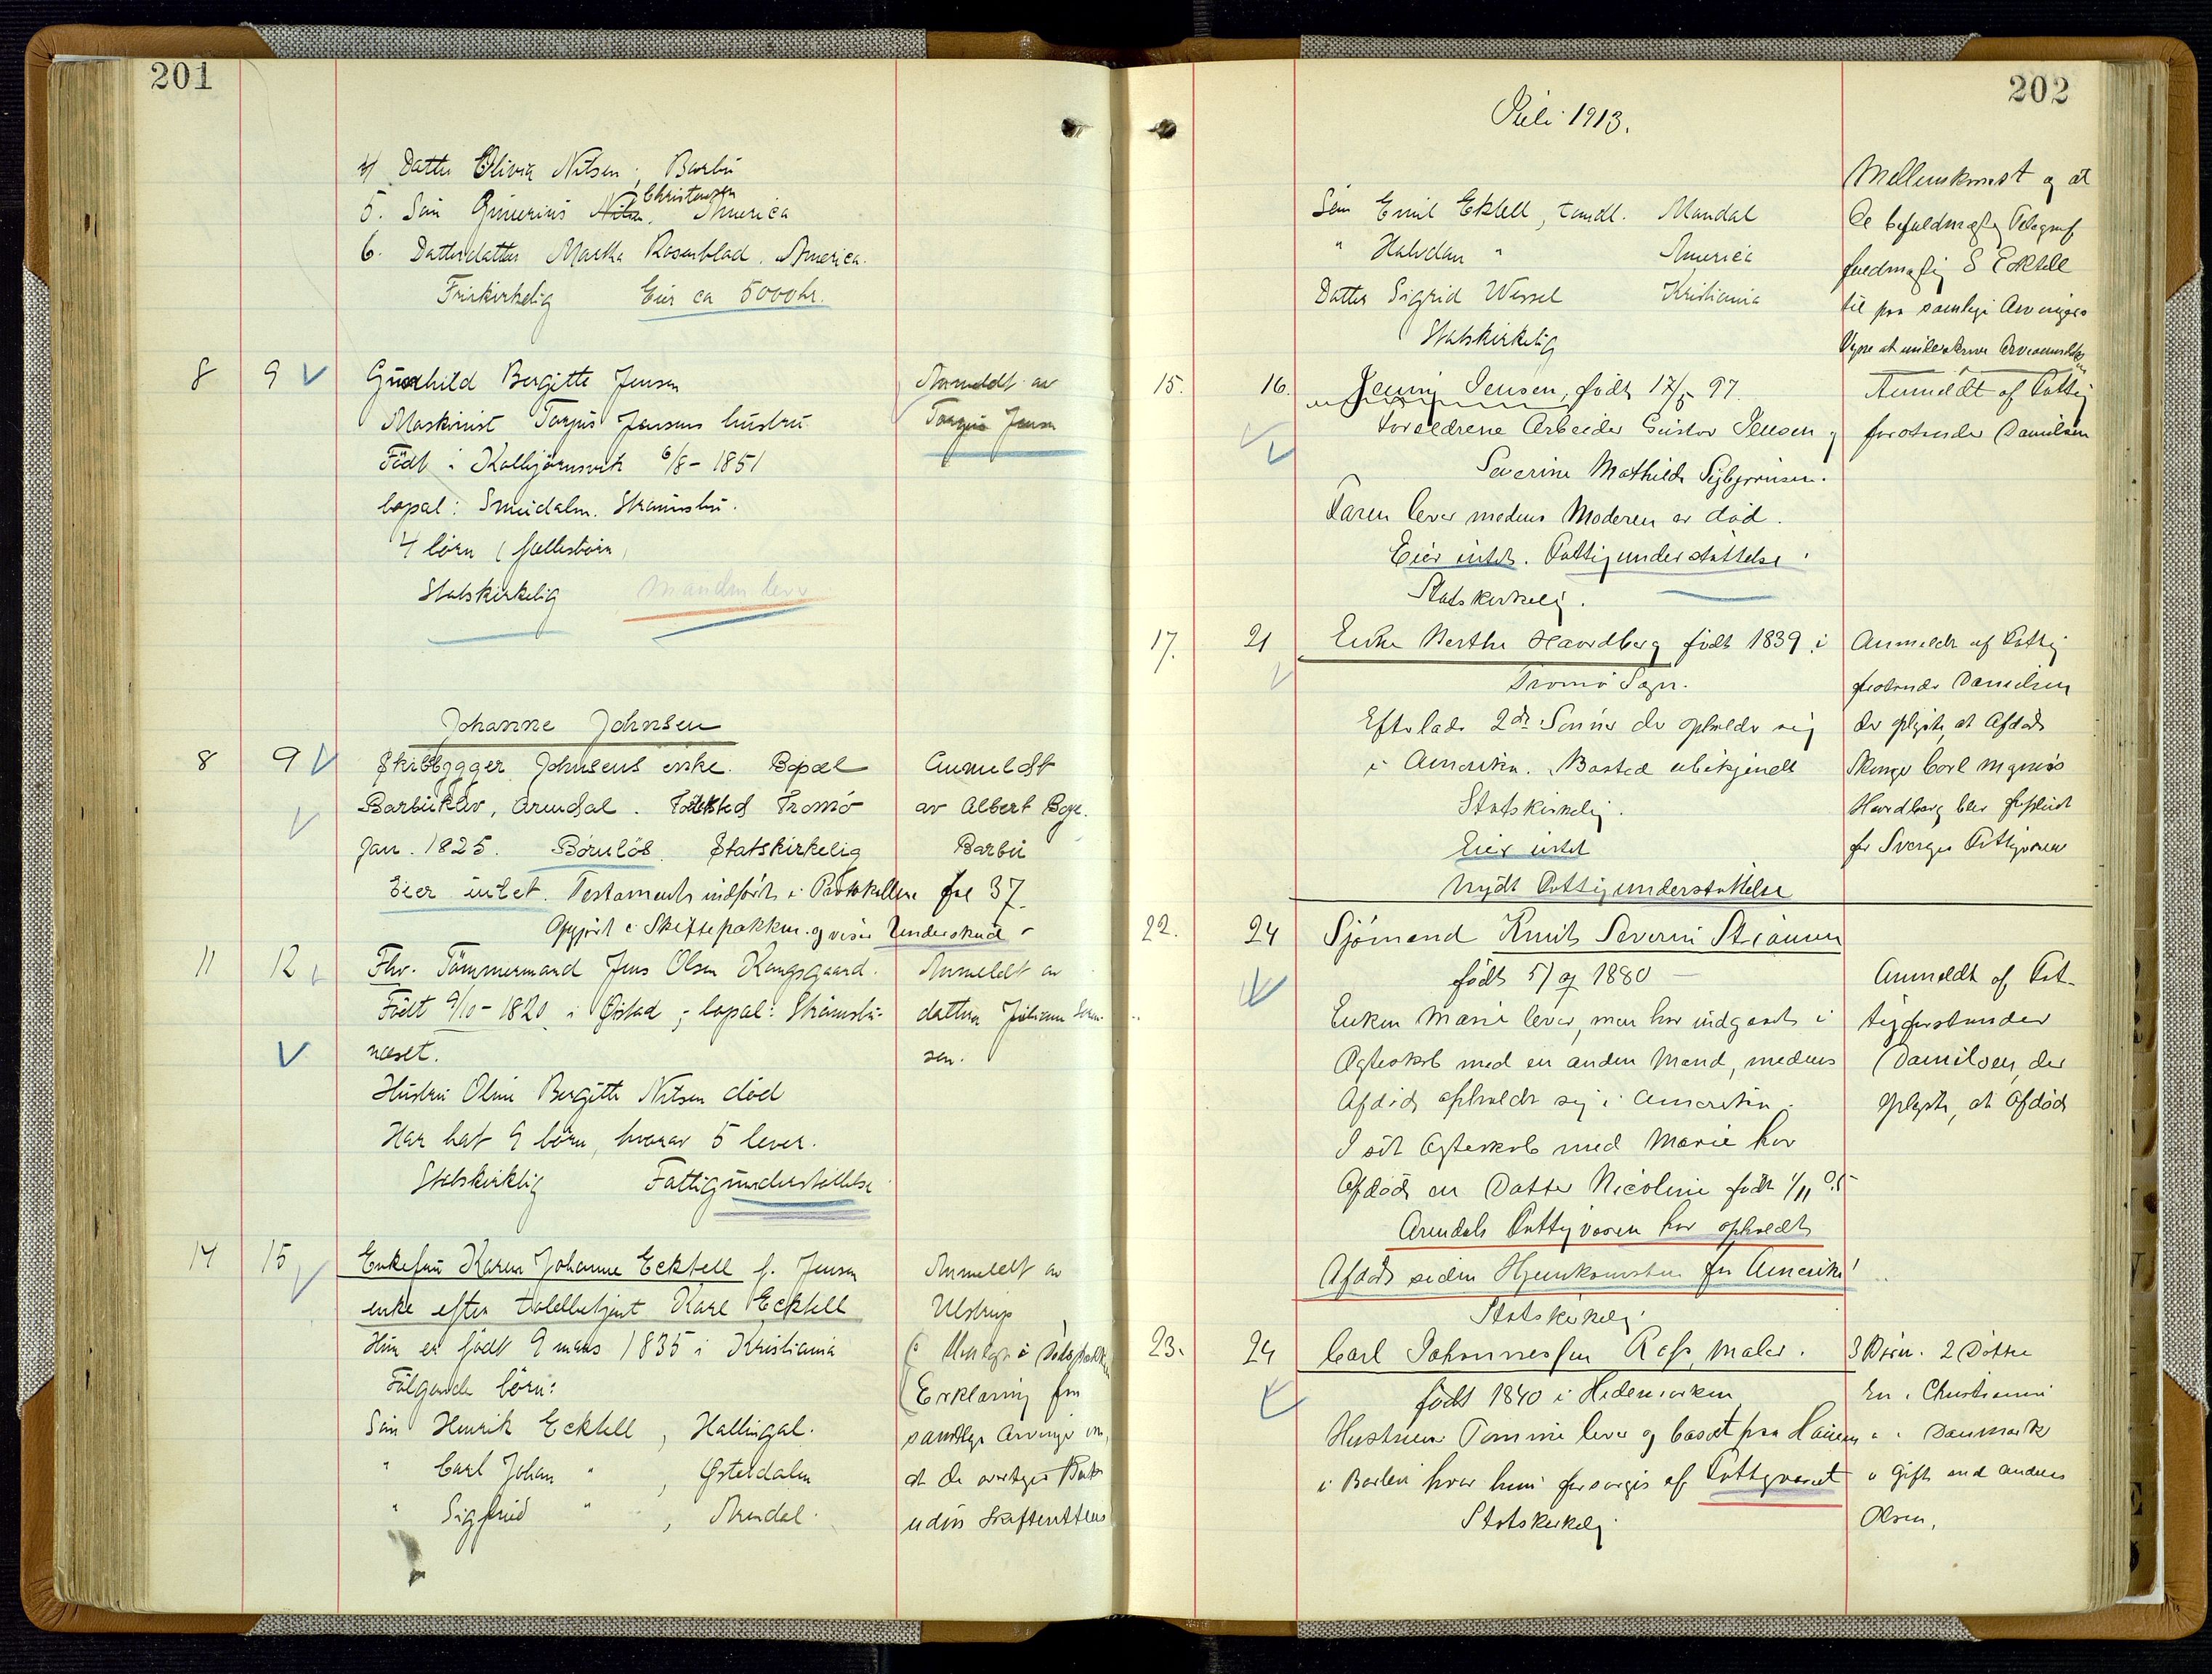 201
4/ Datter Olivia Nilsen, Barbu
Christensen
5. Søn Gunerius Nilsen, America
6. Datterdatter Martha Rosenblad. America.
Frikirkelig Eier ca 5000 kr.
8 9 Gunhild Bergitte Jensen
Maskinist Torjus Jensens hustru
Født i Kolbjørnsvik 6/8-1851
bopæl: Smedalen. Strømsbu.
4 børn (fællesbørn)
Statskirkelig Manden lever
Anmeldt av
Torjus Jensen
Johanne Johnsen
8 9 Skibbygger Johnsens enke. Bopæl
Barbuklev, Arendal. Födested Tromö
Jan. 1825. Börnlös. Statskirkelig
Eier intet. Testamente indført i Protokollen fol 37
Opgjørt i Skiftepakken og viser Underskud
Anmeldt
av Albert Boye.
Barbu
11 12 Fhv. Tömmermand Jens Olsen Kongsgaard.
Født 9/10-1820 i Øistad; bopæl: Strømsbu-
næset.
Hustru Oline Bergitte Nilsen død
Har hat 9 børn, hvorav 5 lever.
Statskirklig Fattigunderstøttelse
Anmeldt av
datteren Juliane
sen.
14 15 Enkefru Karen Johanne Ecktell f. Jensen
enke efter toldbetjent Karl Ecktell
Hun er født 9 mars 1835 i Kristiania
Følgende børn:
Søn Henrik Ecktell, Hallingdal.
" Carl Johan " , Østerdalen
" Sigfried " , Arendal.
Anmeldt av
Ulstrup
Erklæring fra
samtlige Arvinger om,
at de overtager Boet
uden Skifterettens
202
Juli 1913.
Søn Emil Ektell, tandl. Mandal
" Halvdan " America
Datter Sigrid Wessel Kristiania
Statskirkelig
Mellemkomst og at
De befuldmægtig Telegraf
fuldmægtig S Ecktell
til paa samtlige Arvingers
Vegne at underskrive
15. 16. Jenny Jensen, født 17/5 97.
Foreldrene Arbeider Gustav Jensen og
Severine Mathilde
Faren lever medens Moderen er död.
Eier intet. Fattigunderstøttelse.
Statskirkelig.
Anmeldt af Fattig
forstander Danielsen
17. 21 Enke Berthe Haardberg født 1839 i
Tromø Sogn.
Efterlader 2de Sønner der opholder sig
i Amerika. Bosted ubekjendt
Statskirkelig.
Eier intet
Nydt Fattigunderstøttelse
Anmeldt af Fattig
forstander Danielsen
der oplyste, at Afdøde
Carl Magnus
Haardberg blev
for Sverges Fattigvæsen
22. 24 Sjømand Knut Severin Strømmen
født 5/9 1880
Enken Marie lever, men har indgaaet i
Ægteskab med en anden Mand, medens
Afdøde opholdt sig i Amerika.
I sit Ægteskab med Marie har
Afdøde en Datter Nicoline født 1/11 05
Arendals Fattigvæsen har opholdt
Afdøde siden Hjemkomsten fra Amerika!
Statskirkelig
Anmeldt af Fat-
tigforstander
Danielsen, der
oplyste, at Afdøde
23. 24 Carl Johannessen Rafs, maler.
født 1840 i Hedemarken
Hustruen Tomine lever og bosat paa
i Barbu hvor hun forsørges af Fattigvæsenet
Statskirkelig
3 Børn. 2 Døtre
En i Christiania
" i Danmark
" Gift med Anders
Olsen.